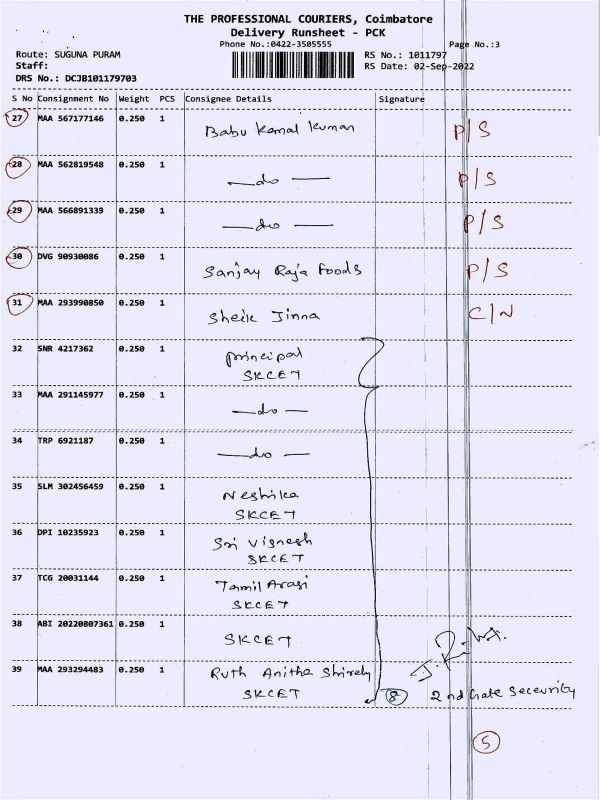 THE PROFESSIONAL COURIERS, Coimbatore
Delivery Runsheet - PCK
Phone No.:0422-3505555 Page No.:3
Route: SUGUNA PURAM RS No.: 1011797
Staff: RS Date: 02-Sep-2022
DRS No.: DCJB101179703
S No Consignment No Weight PCS Consignee Details Signature
27 MAA 567177146 0.250 1 Babu Kamal Kumar P/S
28 MAA 562819548 0.250 1 —do— P/S
29 MAA 566891339 0.250 1 —do— P/S
30 DVG 90930086 0.250 1 Sanjay Raja Foods P/S
31 MAA 293990850 0.250 1 Sheik Jinna C/N
32 SNR 4217362 0.250 1 principal
SKCET
33 MAA 291145977 0.250 1 —do—
34 TRP 6921187 0.250 1 —do—
35 SLM 302456459 0.250 1 Neshika
SKCET
36 DPI 10235923 0.250 1 Sri Vignesh
SKCET
37 TCG 20031144 0.250 1 Tamil Arasi
SKCET
38 ABI 20220807361 0.250 1 SKCET
39 MAA 293294483 0.250 1 Ruth Anitha Shirely
SKCET
8 2nd Gate Security
5